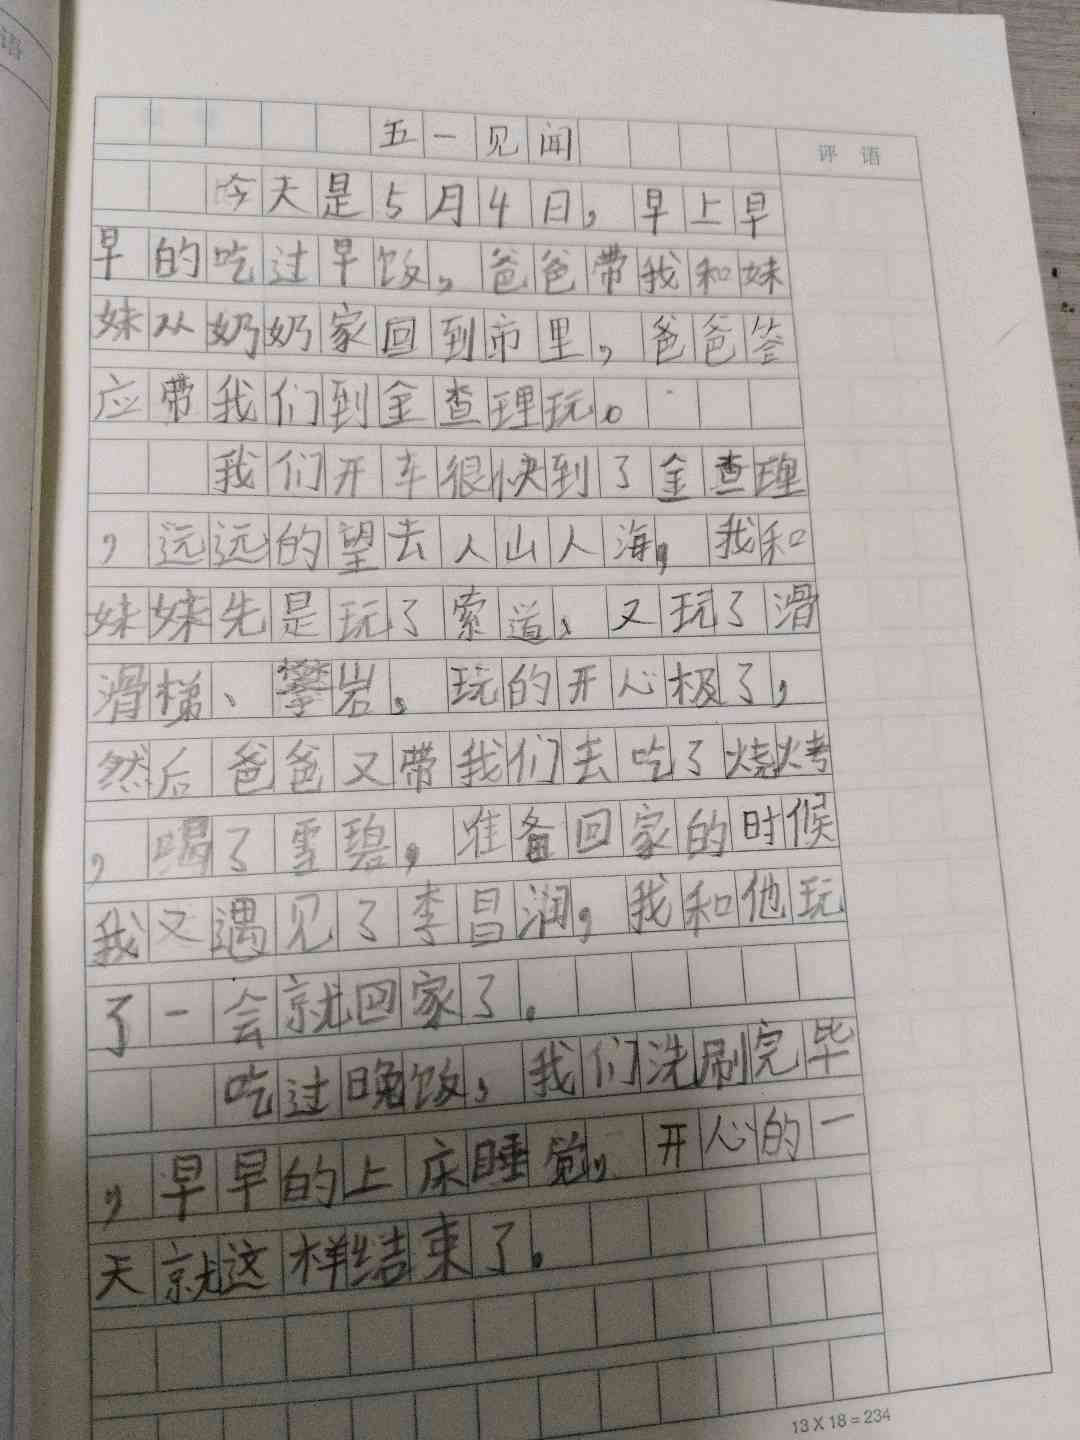 五一见闻
评 语
今天是5月4日，早上早
早的吃过早饭，爸爸带我和妹
妹从奶奶家回到市里，爸爸答
应带我们到金查理玩。
我们开车很快到了金查理
，远远的望去人山人海，我和
妹妹先是玩了索道，又玩了滑
滑梯、攀岩。玩的开心极了，
然后爸爸又带我们去吃了烧烤
，喝了雪碧，准备回家的时候
我又遇见了李昌润，我和他玩
了一会就回家了。
吃过晚饭，我们洗刷完毕
，早早的上床睡觉，开心的一
天就这样结束了。
13 X 18 = 234